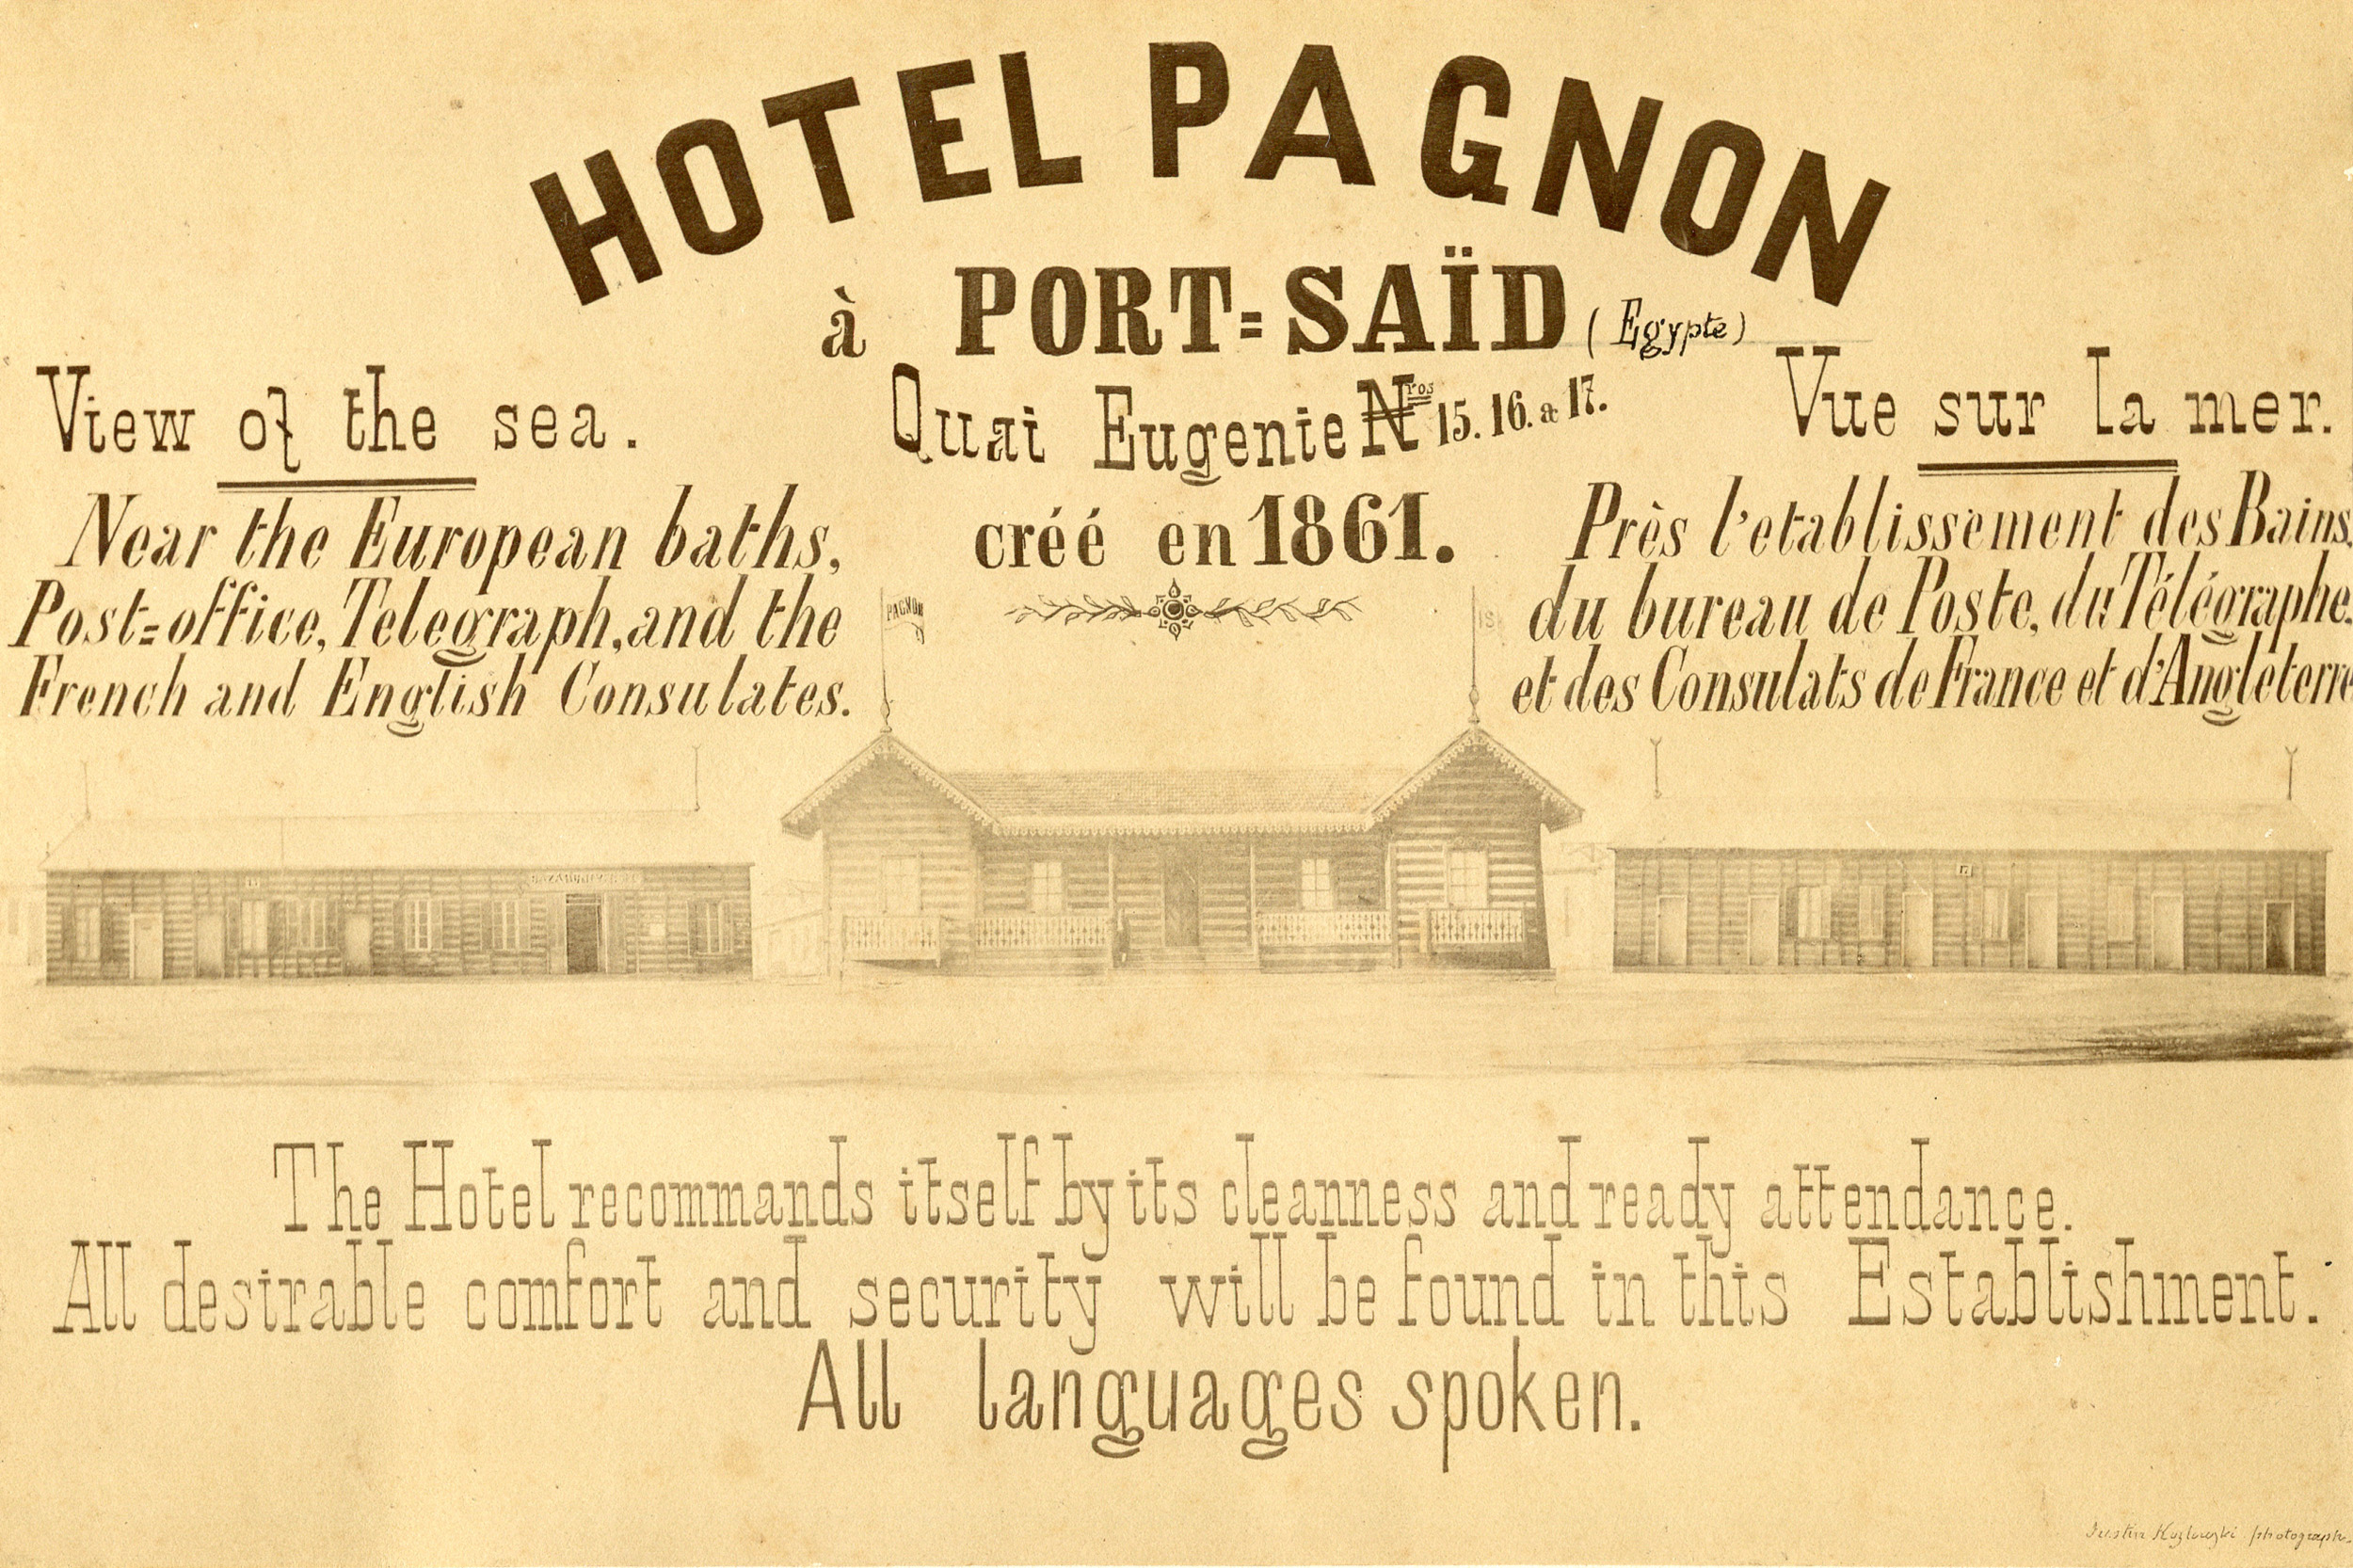 HOTEL PAGNON
à PORT=SAÏD (Egypte)
Quai Eugenie Nros 15. 16. & 17.
créé en 1861.
View of the sea.
Near the European baths,
Post=office, Telegraph, and the
French and English Consulates.
Vue sur la mer.
Près l'etablissement des Bains,
du bureau de Poste, du Télégraphe,
et des Consulats de France et d'Angleterre
PAGNON
The Hotel recommands itself by its cleanness and ready attendance.
All desirable comfort and security will be found in this Establishment.
All languages spoken.
Justin Kozlowski photographe